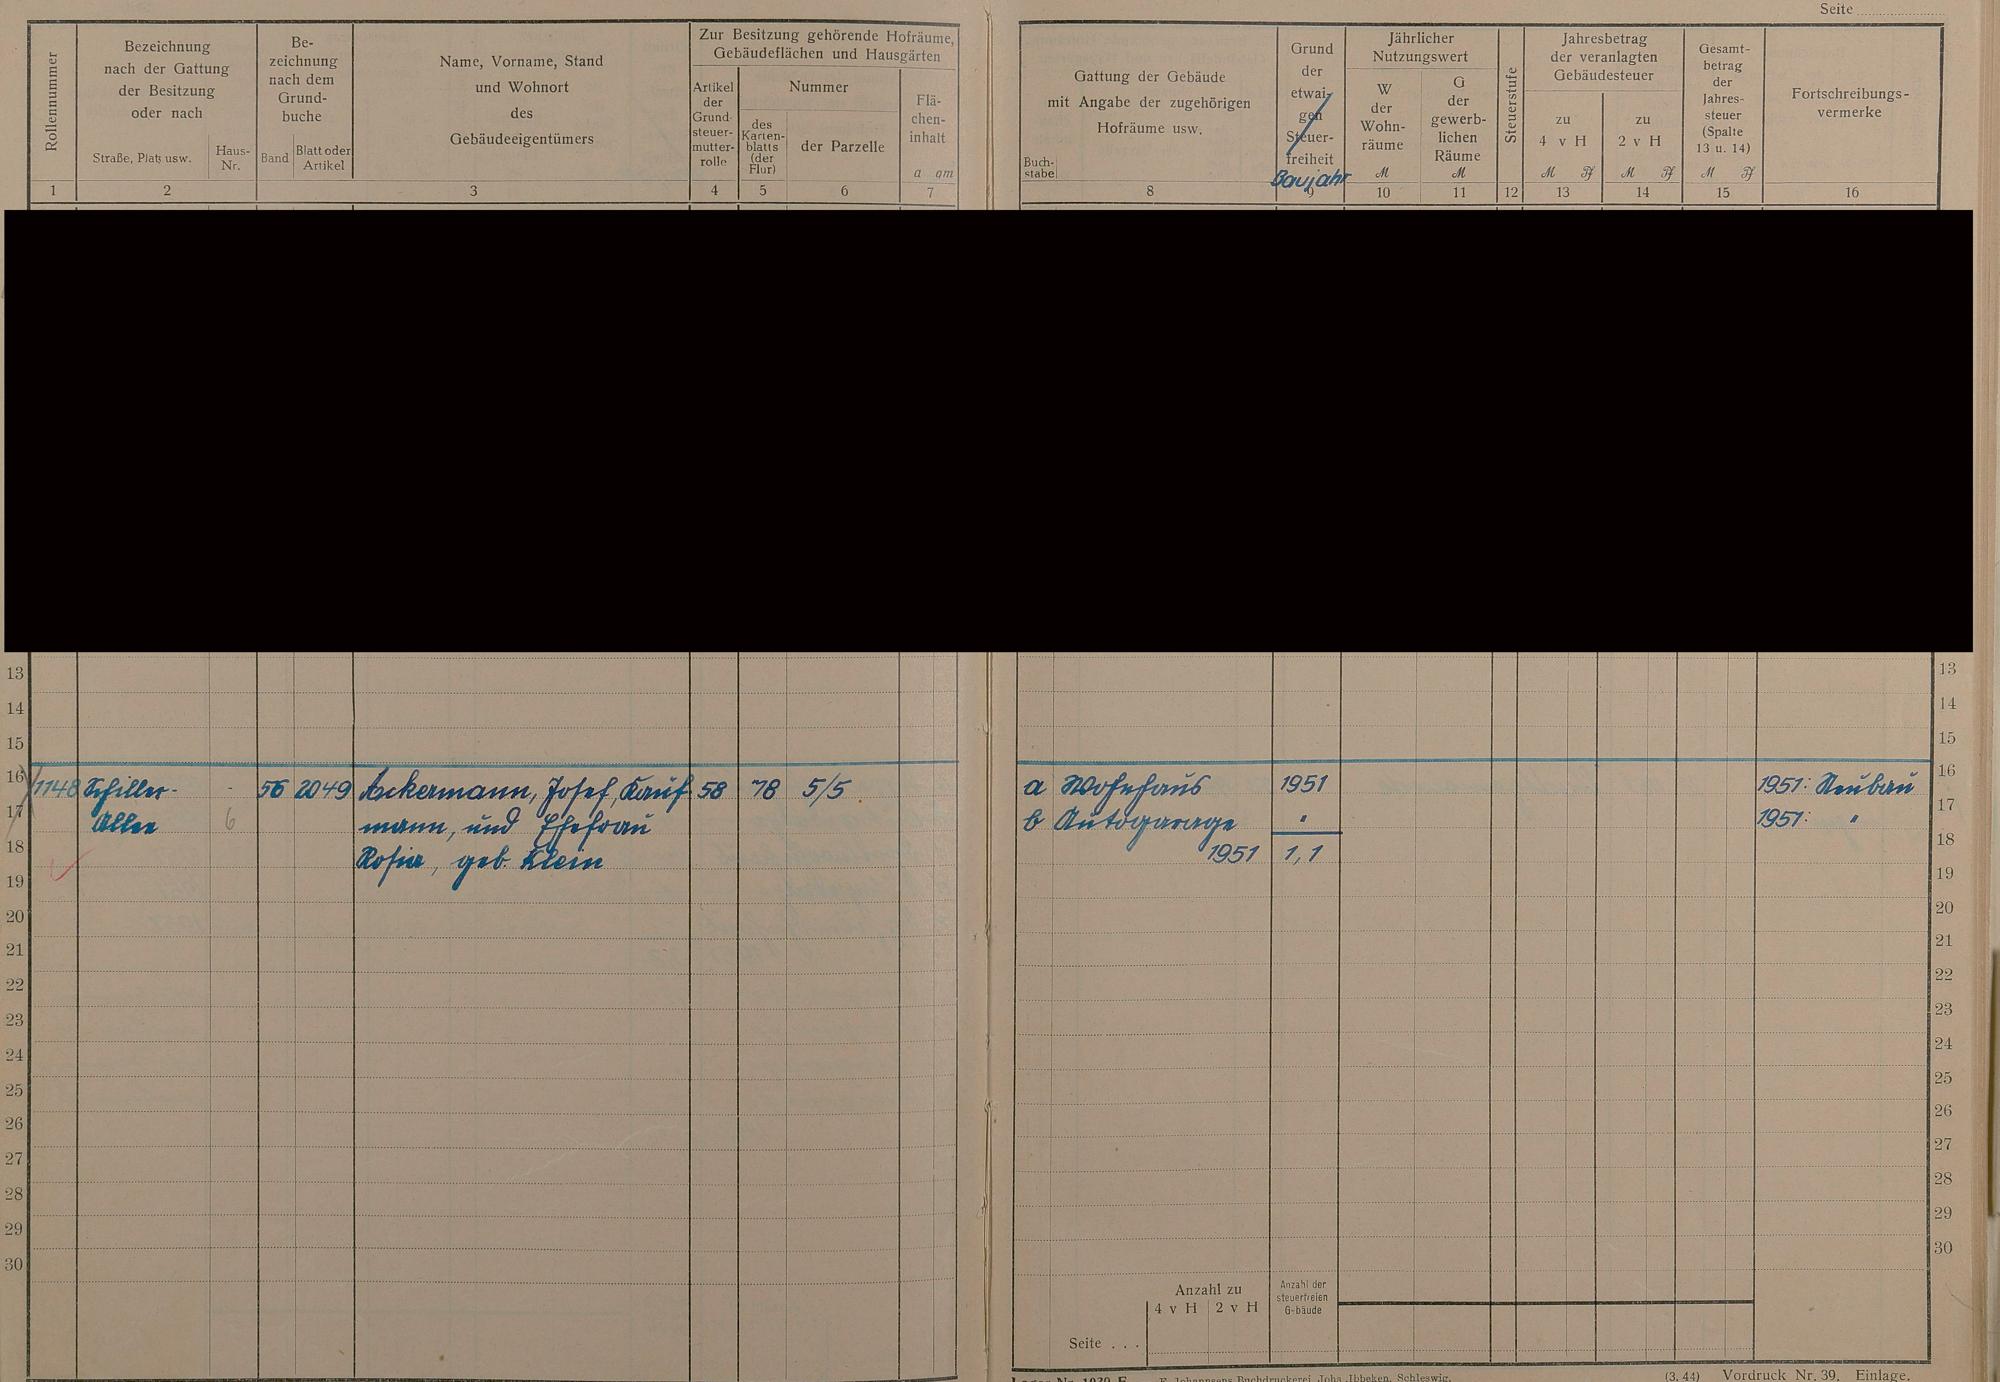 Seite
Rollennummer
Bezeichnung
nach der Gattung
der Besitzung
oder nach
Straße, Platz usw.
Haus-
Nr.
Be-
zeichnung
nach dem
Grund-
buche
Band
Blatt oder
Artikel
Name, Vorname, Stand
und Wohnort
des
Gebäudeeigentümers
Zur Besitzung gehörende Hofräume,
Gebäudeflächen und Hausgärten
Artikel
der
Grund-
steuer-
mutter-
rolle
Nummer
des
Karten-
blatts
(der
Flur)
der Parzelle
Flä-
chen-
inhalt
a qm
1 2 3 4 5 6 7
Buch-
stabe
Gattung der Gebäude
mit Angabe der zugehörigen
Hofräume usw.
Grund
der
etwai-
gen
Steuer-
freiheit
Baujahr
Jährlicher
Nutzungswert
W
der
Wohn-
räume
M
G
der
gewerb-
lichen
Räume
M
Steuerstufe
Jahresbetrag
der veranlagten
Gebäudesteuer
zu
4 v H
M Pf
zu
2 v H
M Pf
Gesamt-
betrag
der
Jahres-
steuer
(Spalte
13 u. 14)
M Pf
Fortschreibungs-
vermerke
8 9 10 11 12 13 14 15 16
13 13
14 14
15 15
16 1148 Schiller- - 56 2049 Ackermann, Josef, Kauf- 58 78 5/5 a Wohnhaus 1951 1951: Neubau 16
17 Allee 6 mann, und Ehefrau b Autogarage " 1951: " 17
18 Rosia, geb. Klein 1951 1,1 18
19 19
20 20
21 21
22 22
23 23
24 24
25 25
26 26
27 27
28 28
29 29
30 30
Anzahl zu
4 v H 2 v H
Anzahl der
steuerfreien
Gebäude
Seite . . .
Lager-Nr. 1030 E. F. Johannsens Buchdruckerei, Johs. Ibbeken, Schleswig. (3. 44) Vordruck Nr. 39, Einlage.